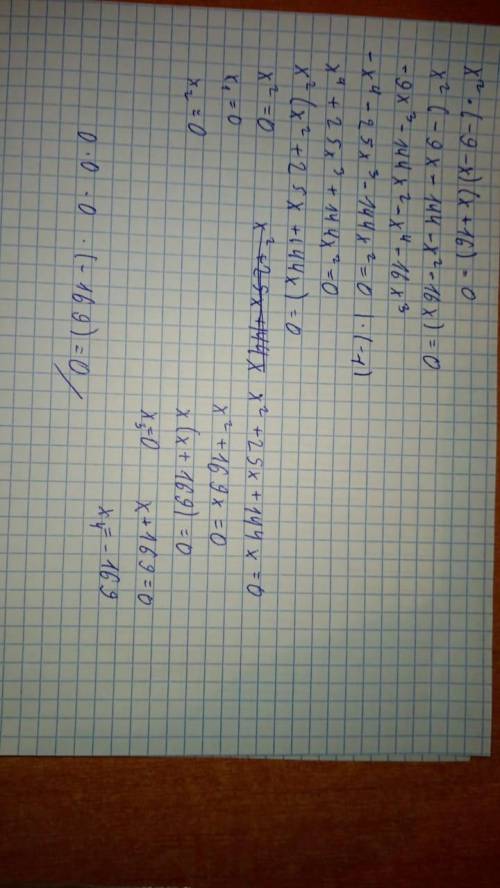 x²·(-9-x)(x+16)=0
x²(-9x-144-x²-16x)=0
-9x³-144x²-x⁴-16x³
-x⁴-25x³-144x²=0 |·(-1)
x⁴+25x³+144x²=0
x²(x²+25x+144x)=0
x²=0 x²+25x+144x x²+25x+144x=0
x₁=0 x²+169x=0
x₂=0 x(x+169)=0
x₃=0 x+169=0
x₄=-169
0·0·0·(-169)=0